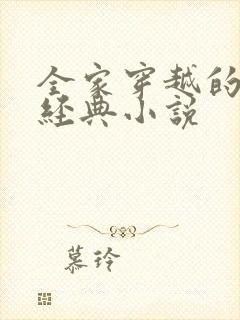 全家穿越的
经典小说
慕玲